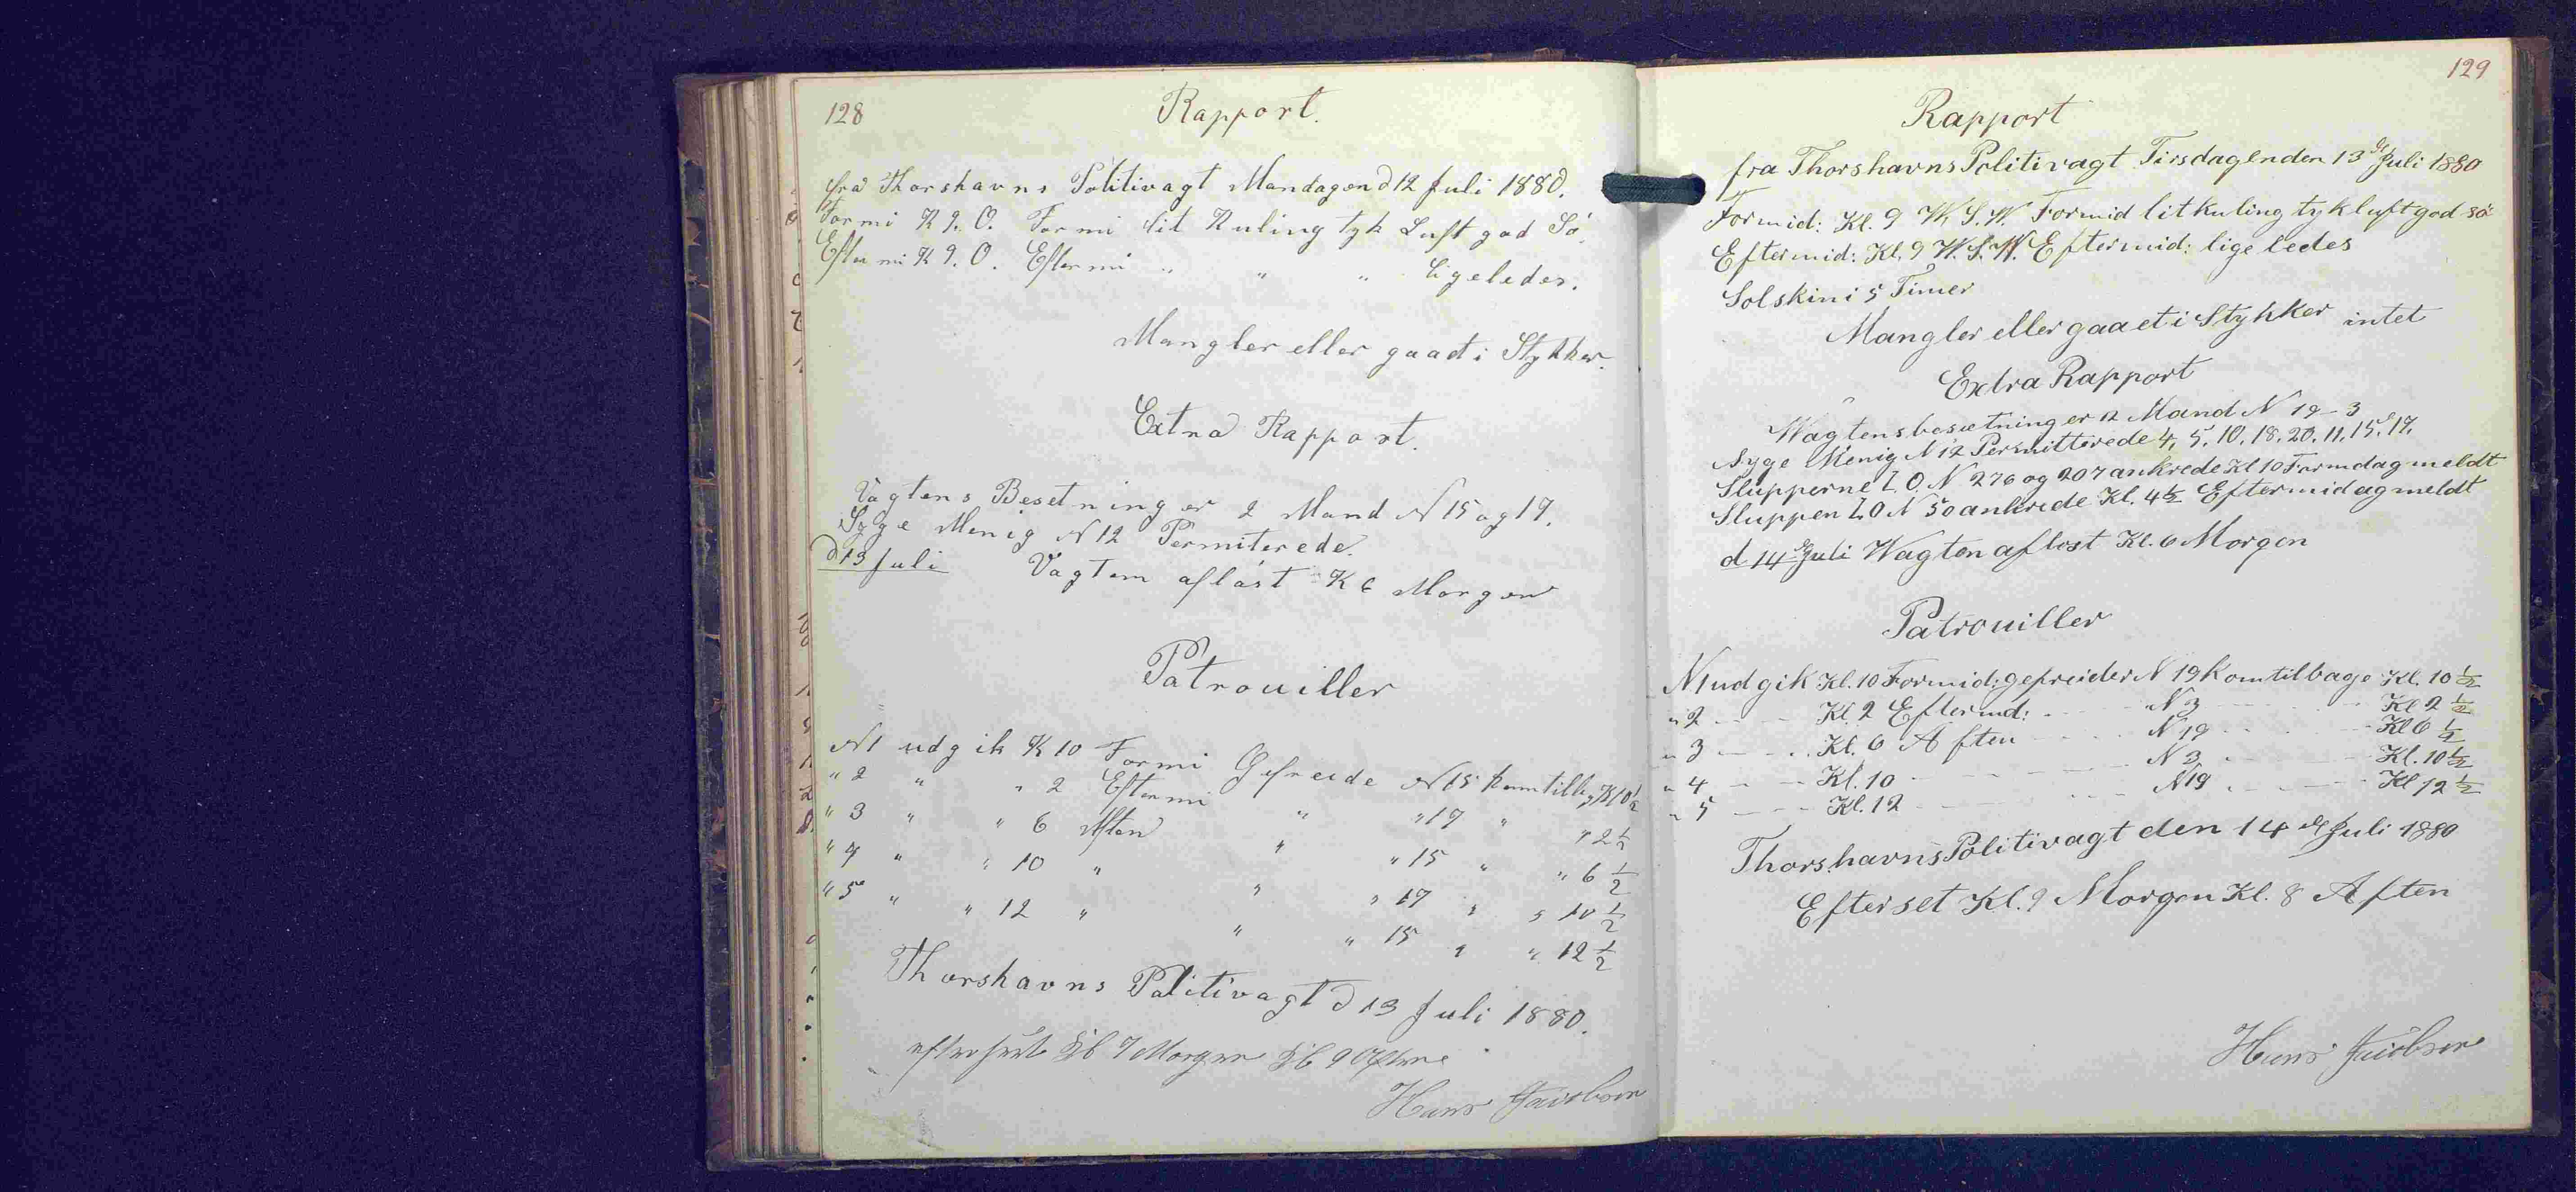 128
Rapport.
fra Thorshavns Politivagt Mandagen d 12 Juli 1880.
Formi K 9. O. Formi lit Kuling tyk Luft god Sö.
Eftermi K 9. O. Eftermi " " " Ligeledes.
Mangler eller gaaet i Stykker.
Extra Rapport.
Vagtens Besetning er 2 Mand N 15 og 17.
Syge Menig N 12 Permiterede.
d 13 Juli Vagten aflöst K 6 Morgen
Patrouiller
N 1 udgik K 10 Formi Gefreide N 15 kom tilbg K 10 1/2
" 2 " " 2 Eftermi " " 17 " " 2 1/2
" 3 " " 6 Aften " " 15 " " 6 1/2
" 4 " " 10 " " " 17 " " 10 1/2
" 5 " " 12 " " " 15 " " 12 1/2
Thorshavns Politivagt d 13 Juli 1880.
efterset Kl 9 Morgen Kl 9 Aften
Hans Jacobsen
129
Rapport
fra Thorshavns Politivagt Tirsdagen den 13de Juli 1880
Formid: Kl. 9 W. S. W. Formid lit kuling tyk luft god sö
Eftermid: Kl. 9 W. S. W. Eftermid: lige ledes
Solskin i 5 Timer
Mangler eller gaaet i Stykker intet
Extra Rapport
Wagtens besætning er 2 Mand N 19 - 3
Syge Menig N 12 Permitterede 4, 5, 10, 18, 20, 11, 15, 17.
Slupperne T. O N 276 og 207 ankrede Kl 10 Formdag meldt
Sluppen T. O N 50 ankrede Kl. 4 1/2 Eftermidag meldt
d 14de Juli Wagten aflöst Kl. 6 Morgen
Patrouiller
N 1 udgik Kl. 10 Formid: gefreider N 19 kom tilbage Kl. 10 1/2
" 2 - - Kl. 2 Eftermd: - - N 3 - - Kl 2 1/2
" 3 - - Kl. 6 Aften - - N 19 - - Kl 6 1/2
" 4 - - Kl. 10 - - N 3 - - Kl. 10 1/2
" 5 - - Kl. 12 - - N 19 - - Kl 12 1/2
Thorshavns Politivagt den 14de Juli 1880
Efterset Kl. 9 Morgen Kl. 8 Aften
Hans Jacobsen